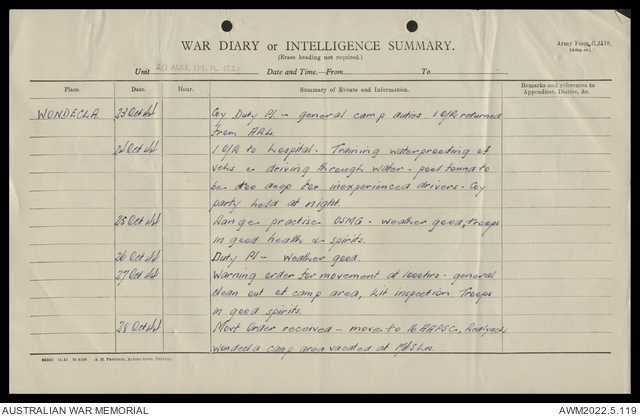 WAR DIARY or INTELLIGENCE SUMMARY.
(Erase heading not required.)
Army Form C.2118.
Unit 2/1 AUST. TPT. PL.
Date and Time.—From To
Place. Date Hour. Summary of Events and Information. Remarks and references to Appendices, Diaries, &c.
WONDECLA 23 Oct 44 Coy Duty Pl. - general camp duties. 1 O/R returned
from
24 Oct 44 1 O/R to hospital. Training waterproofing of
vehs & driving through water - pool found to
be too deep for inexperienced drivers - Coy
party held at night.
25 Oct 44 Range practise OSMG - weather good, troops
in good health & spirits.
26 Oct 44 Duty Pl - Weather good.
27 Oct 44 Warning order for movement at 1000hrs - general
clean out of camp area, kit inspection. Troops
in good spirits.
28 Oct 44 Movt Order received - move to 16 AAPSC, Redlynch
Wondecla camp area vacated at
AUSTRALIAN WAR MEMORIAL AWM2022.5.119